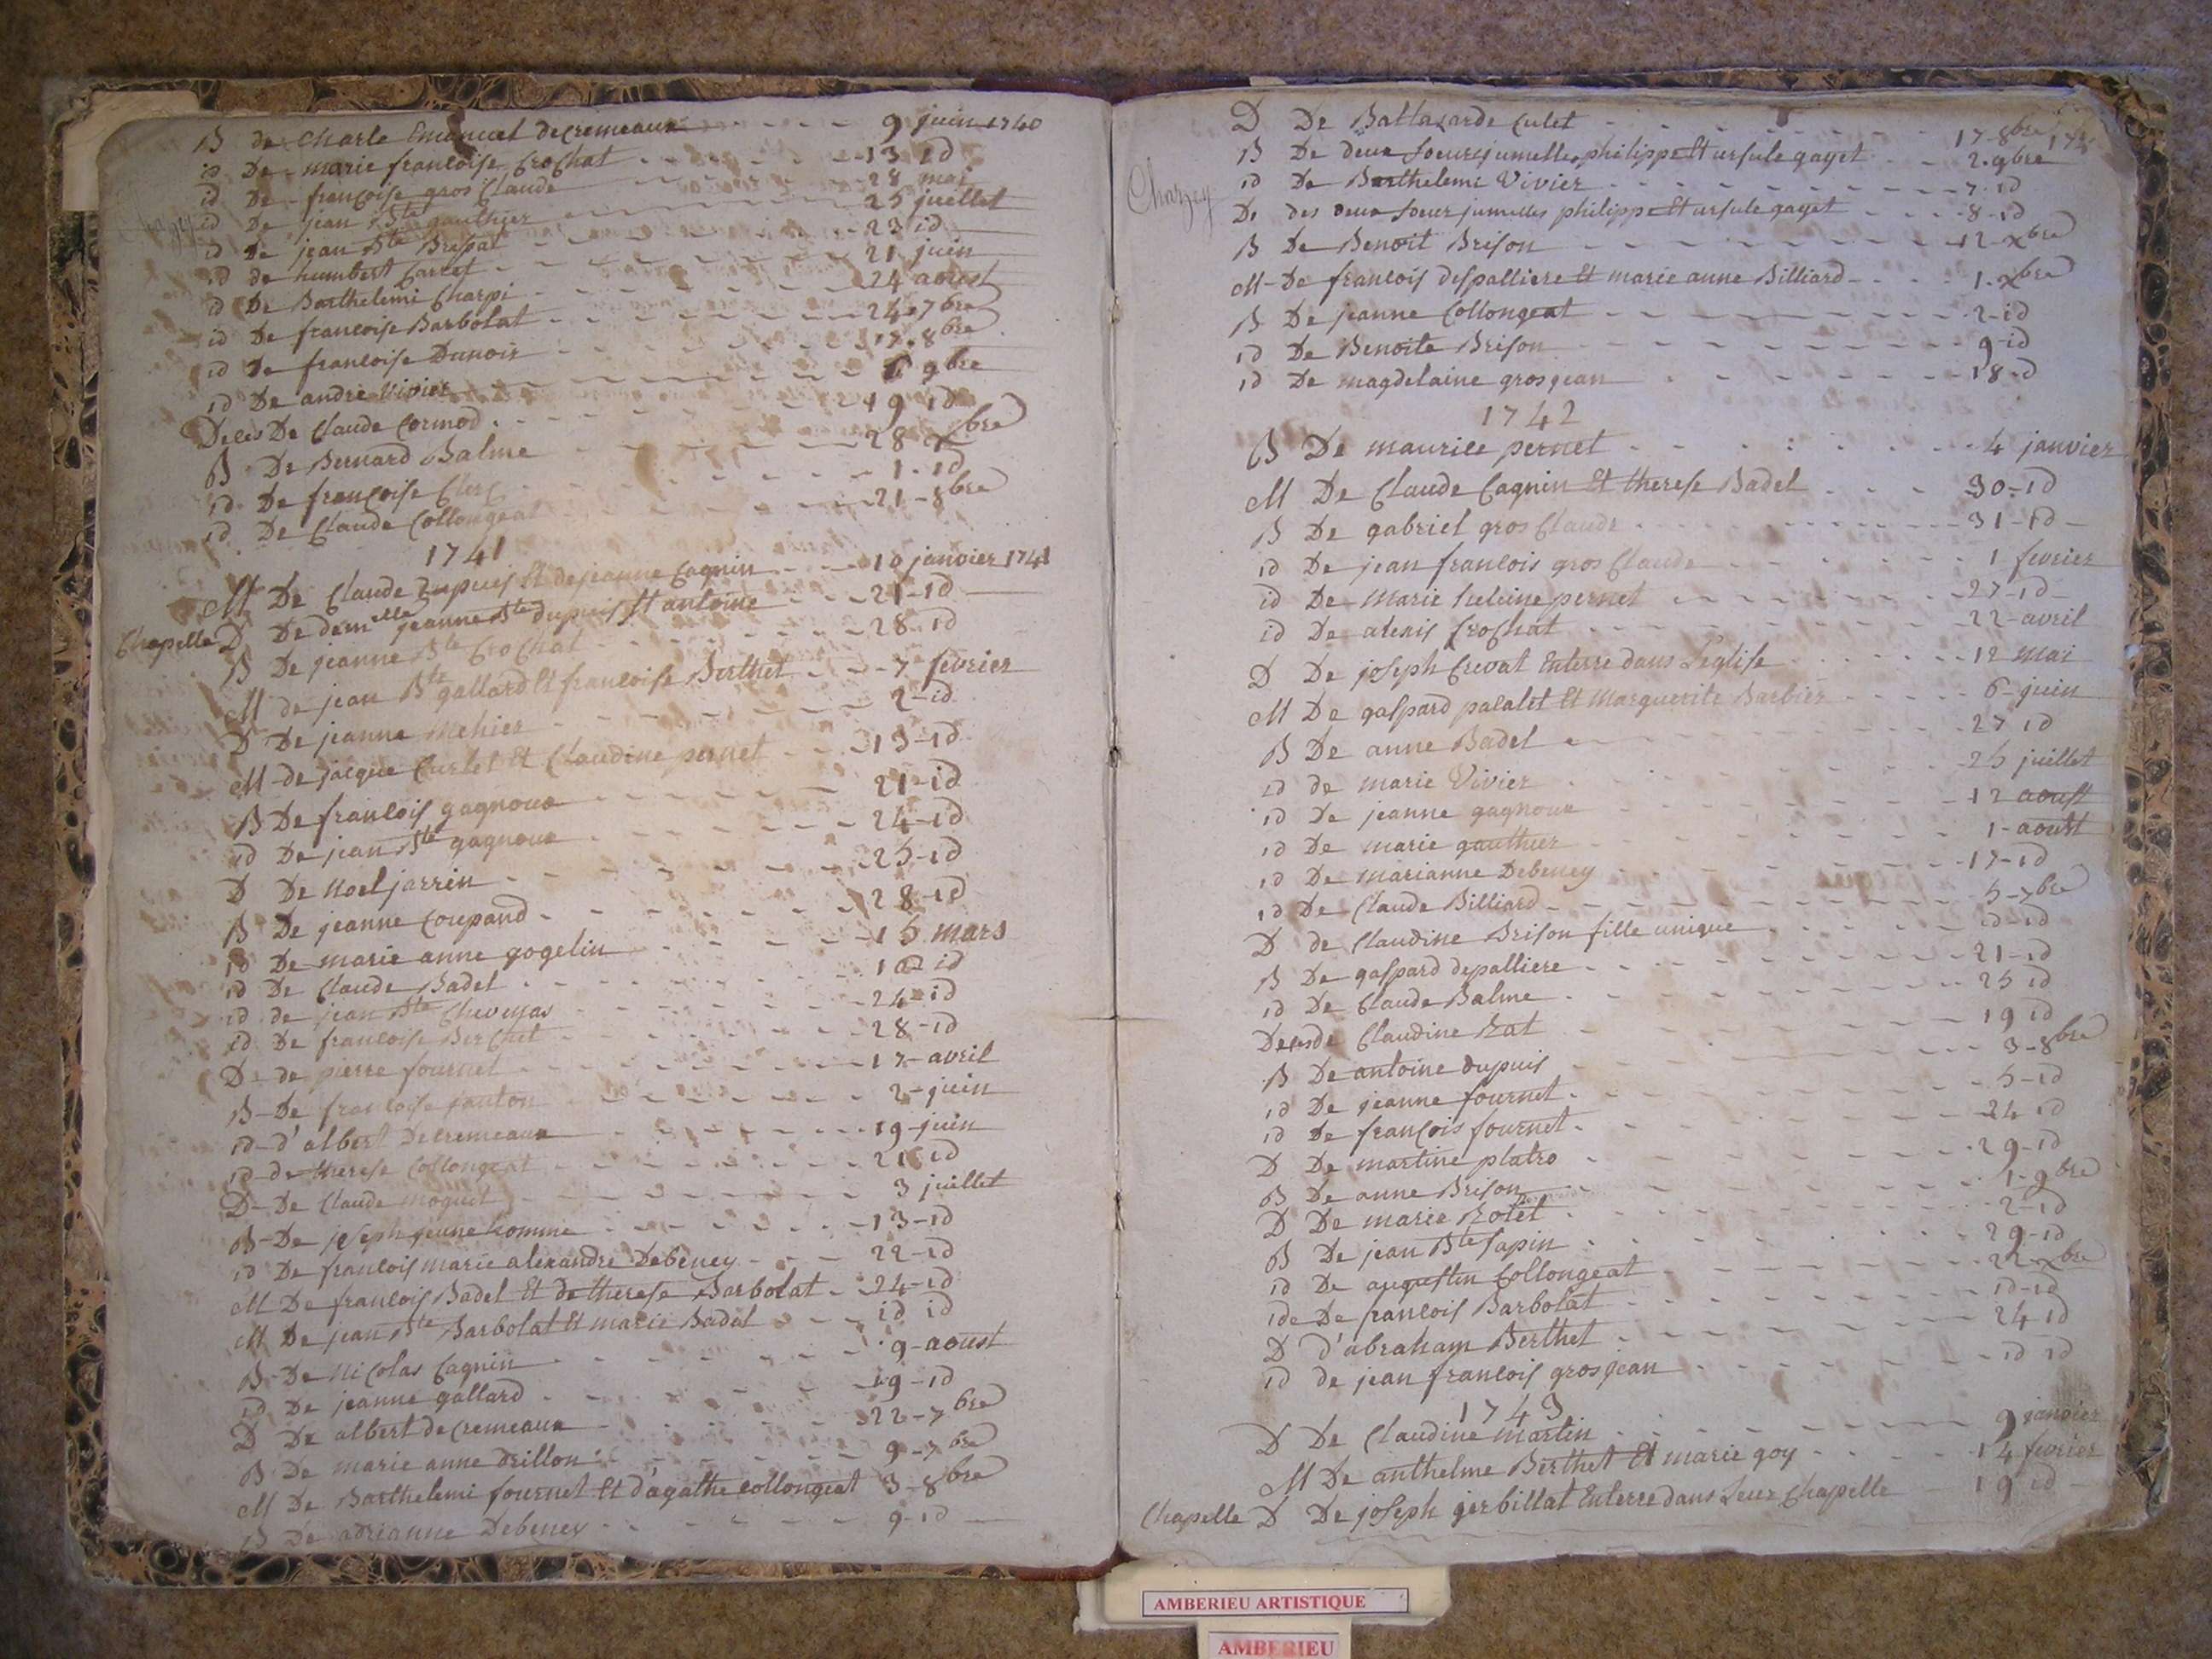 B de Charle Emanuel decremeaux - - - - 9 juin 1740
id De marie francoise Crochat - - - - 13 id
id De francoise gros Claude - - - - 28 mai
id De jean Bte gauthier - - - - 25 juillet
id De jean Bte Bressat - - - - 23 id
id de humbert Carrel - - - - 21 juin
id De Barthelemi Charpi - - - - 24 aoust
id De francoise Barbolat - - - - 24 7bre
id De francoise Dunoir - - - - 17 8bre
id De andre Vivier - - - - 6 9bre
Deces De Claude Cormod - - - - 19 id
B De Bernard Balme - - - - 28 xbre
id De francoise Clerc - - - - 1 id
id De Claude Collongeat - - - - 21 8bre
1741
M De Claude Dupuis Et de jeanne Cagnin - - - - 10 janvier 1741
Chapelle D De demelle jeanne Bte dupuis St antoine - - - - 21 id
B De jeanne Bte Crochat - - - - 28 id
M de jean Bte gallard Et francoise Berthet - - - - 7 fevrier
D De jeanne Mehier - - - - 2 id
M de jacque Curlet Et Claudine pernet - - - - 13 id
B De francois gagnoux - - - - 21 id
id De jean Bte gagnoux - - - - 24 id
D De Noel jarrin - - - - 25 id
B De jeanne Coupand - - - - 28 id
id De marie anne gogelin - - - - 15 mars
id De Claude Badel - - - - 10 id
id de jean Bte Chevenas - - - - 24 id
id De francoise Berchet - - - - 28 id
D de pierre fournet - - - - 17 avril
B De francoise janton - - - - 2 juin
id d'albert Decremeaux - - - - 19 juin
id de therese Collongeat - - - - 21 id
D De Claude moquet - - - - 3 juillet
B De joseph jeune homme - - - - 13 id
id De francois marie alexandre Debeney - - - - 22 id
M De francois Badel Et de therese Barbolat - 24 id
M De jean Bte Barbolat Et marie Badel - - id id
B De Nicolas Cagnin - - - - 9 aoust
id De jeanne gallard - - - - 19 id
D De albert decremeaux - - - - 22 7bre
B De marie anne Drillon - - - - 9 7bre
M De Barthelemi fournet Et d'agathe collongeat 3 8bre
B De adrianne Debeney - - - - 9 id
D De Baltazarde Culet - - - - 17 8bre
B De deux soeurs jumelles philippe Et ursule gayet - - 2 9bre
Charzey id De Barthelemi Vivier - - - - 7 id
D des deux soeur jumelles philippe Et ursule gayet - - - - 8 id
B De Benoit Brison - - - - 12 xbre
M De francois despalliere Et marie anne Billiard - - - - 1 xbre
B De jeanne Collongeat - - - - 2 id
id De Benoite Brison - - - - 9 id
id De magdelaine grosjean - - - - 18 id
1742
B De maurice pernet - - - - 4 janvier
M De Claude Cagnin Et therese Badel - - - - 30 id
B De gabriel gros Claude - - - - 31 id
id De jean francois gros Claude - - - - 1 fevrier
id De Marie heleine pernet - - - - 27 id
id De alexis Crochat - - - - 22 avril
D De joseph Crevat Enterre dans L'eglise - - - - 12 mai
M De gaspard palalet Et Marguerite Barbier - - - - 6 juin
B De anne Badel - - - - 27 id
id de marie Vivier - - - - 25 juillet
id De jeanne gagnoux - - - - 12 aoust
id De marie gauthier - - - - 1 aoust
id De marianne Debeney - - - - 17 id
id De Claude Billiard - - - - 5 7bre
D de Claudine Brison fille unique - - - - id id
B De gaspard depalliere - - - - 21 id
id De Claude Balme - - - - 25 id
Deces de Claudine Rat - - - - 19 id
B De antoine dupuis - - - - 3 8bre
id De jeanne fournet - - - - 5 id
id De francois fournet - - - - 24 id
D De martine platro - - - - 29 id
B De anne Brison - - - - 1 9bre
D De marie Rolet - - - - 2 id
B De jean Bte Sapin - - - - 29 id
id De augustin Collongeat - - - - 22 xbre
id De francois Barbolat - - - - id id
D d'abraham Berthet - - - - 24 id
id de jean francois grosjean - - - - id id
1743
D De Claudine martin - - - - 9 janvier
M De anthelme Berthet Et marie goy - - - - 14 fevrier
Chapelle D De joseph gerbillat Enterre dans Leur Chapelle - 19 id
AMBERIEU ARTISTIQUE
AMBERIEU